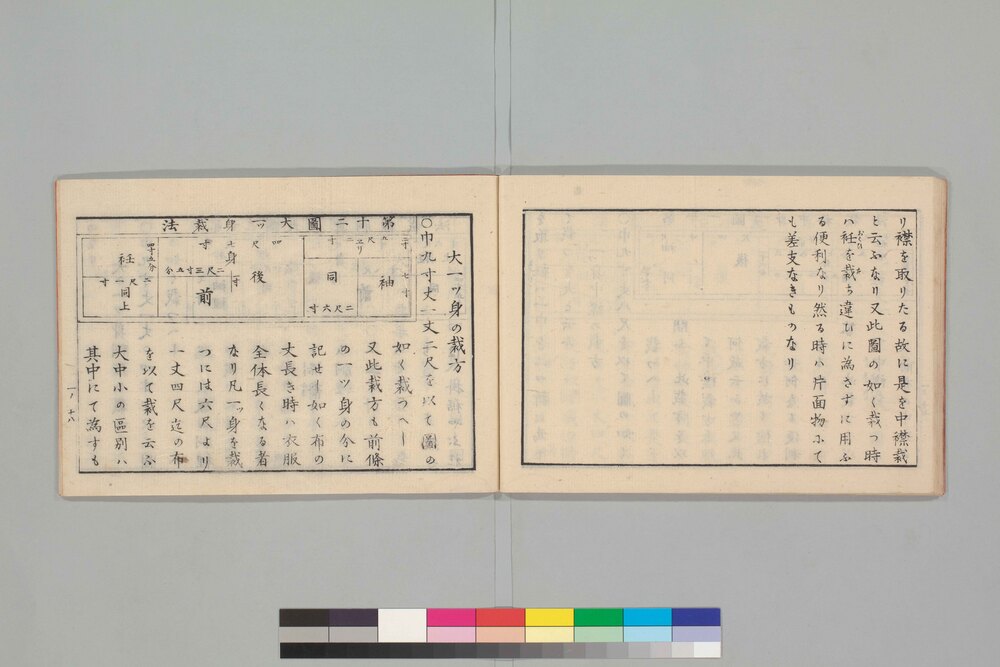 リ襟を取りたる故に是を中襟裁
と云ふなり又此圖の如く裁つ時
ハ衽を裁ち違ひに為さずに用ふ
る便利なり然る時ハ片面物ふて
も差支なきものなり
大一ッ身の裁方
〇巾九寸丈一丈二尺を以て圖の
如く裁つべし
又此裁方も前條
の一ッ身の分に
記せし如く布の
丈長き時ハ衣服
全体長くなる者
なり凡一ッ身を裁
つには六尺より
一丈四尺迄の布
を以て裁を云ふ
大中小の區別ハ
其中にて為すも
第十二圖大一ッ身裁法
袖
同
二尺六寸
後
身
前
二尺三寸五分
四寸五分
衽
同上
一ノ十八